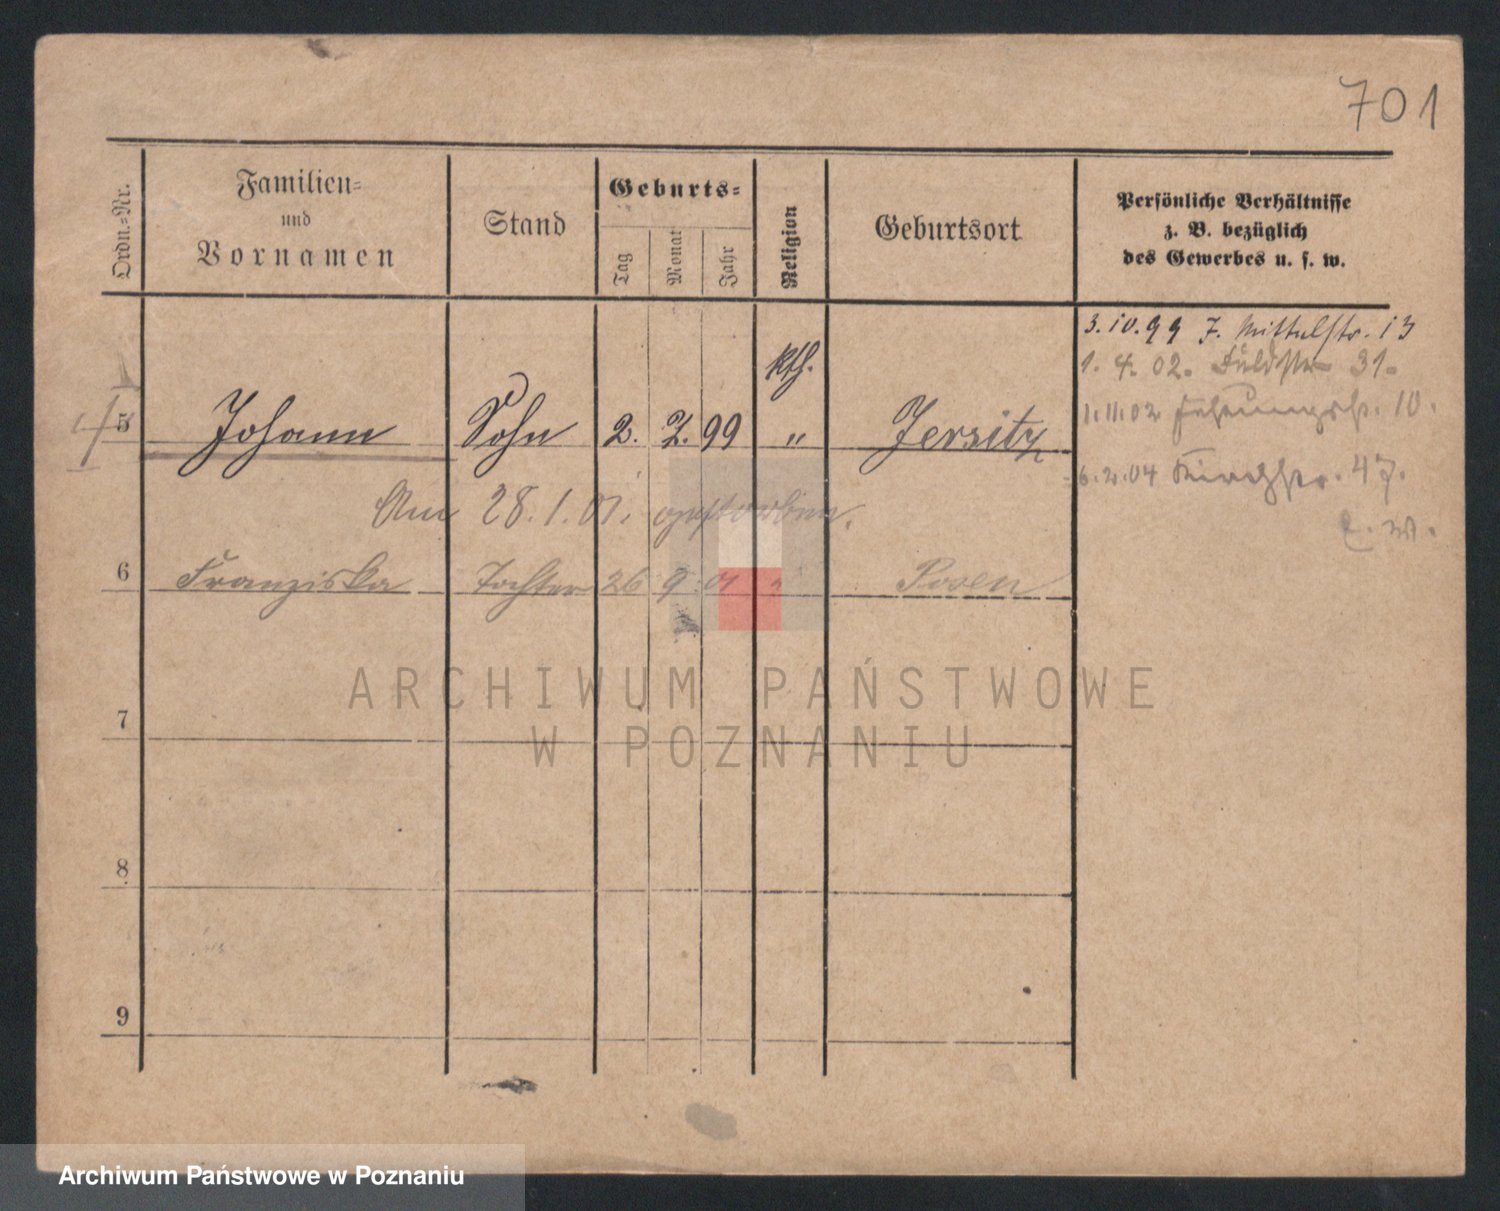 701
Ordn.-Nr.
Familien-
und
Vornamen
Stand
Geburts-
Tag
Monat
Jahr
Religion
Geburtsort
Persönliche Verhältnisse
z. B. bezüglich
des Gewerbes u. s. w.
3.10.99 J. Mittelstr. 13
1. 4. 02. 31.
1.11.02 10.
6.2.04 Kirchstr. 47.
kth.
5 Johann Sohn 2. 7. 99 " Jersitz
Am 28.1.01. gestorben.
6 Franziska Tochter 26 9 01 " Posen
7
8
9
ARCHIWUM PAŃSTWOWE
W POZNANIU
Archiwum Państwowe w Poznaniu